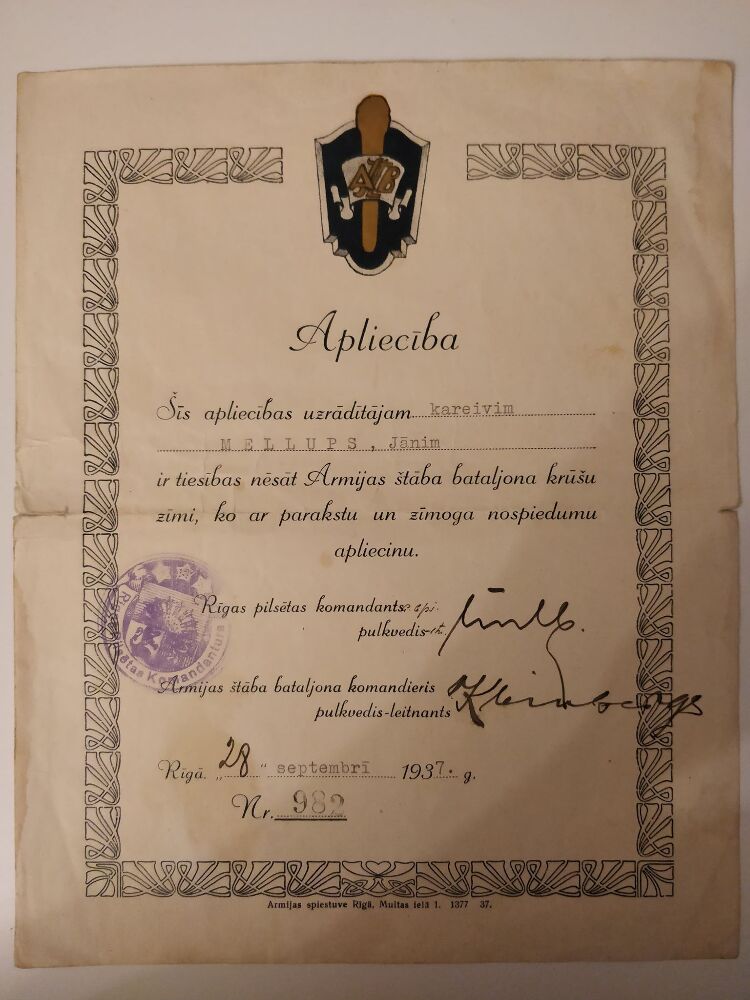 AŠB
Apliecība
Šīs apliecības uzrādītājam kareivim
MELLUPS, Jānim
ir tiesības nēsāt Armijas štāba bataljona krūšu
zīmi, ko ar parakstu un zīmoga nospiedumu
apliecinu.
Rīgas pilsētas komandants
pulkvedis-lt.
Rīgas pilsētas Komandantūra
Armijas štāba bataljona komandieris
pulkvedis-leitnants Kleinbergs
Rīgā. „28" septembrī 1937. g.
Nr. 982
Armijas spiestuve Rīgā, Muitas ielā 1. 1377 37.